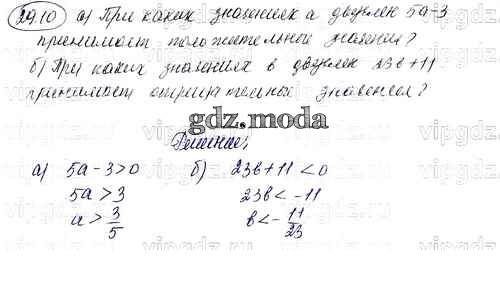 29.10 а) При каких значениях а двучлен 5а-3
принимает положительные значения?
б) При каких значениях в двучлен 23в+11
принимает отрицательные значения?
gdz.moda
Решение:
а) 5а-3>0 б) 23в+11<0
5а>3 23в<-11
а>3/5 в<-11/23